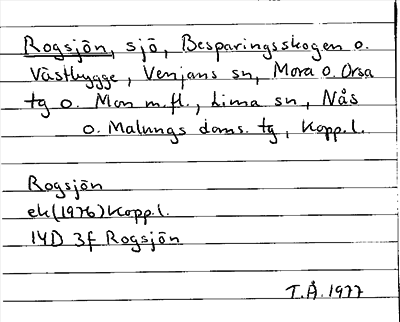 Rogsjön, sjö, Besparingsskogen o.
Västbygge, Venjans sn, Mora o. Orsa
tg o. Mon m.fl., Lima sn, Nås
o. Malungs doms. tg, Kopp.l.
Rogsjön
ek(1976)Kopp.l.
14D 3f Rogsjön
T.Å.1977